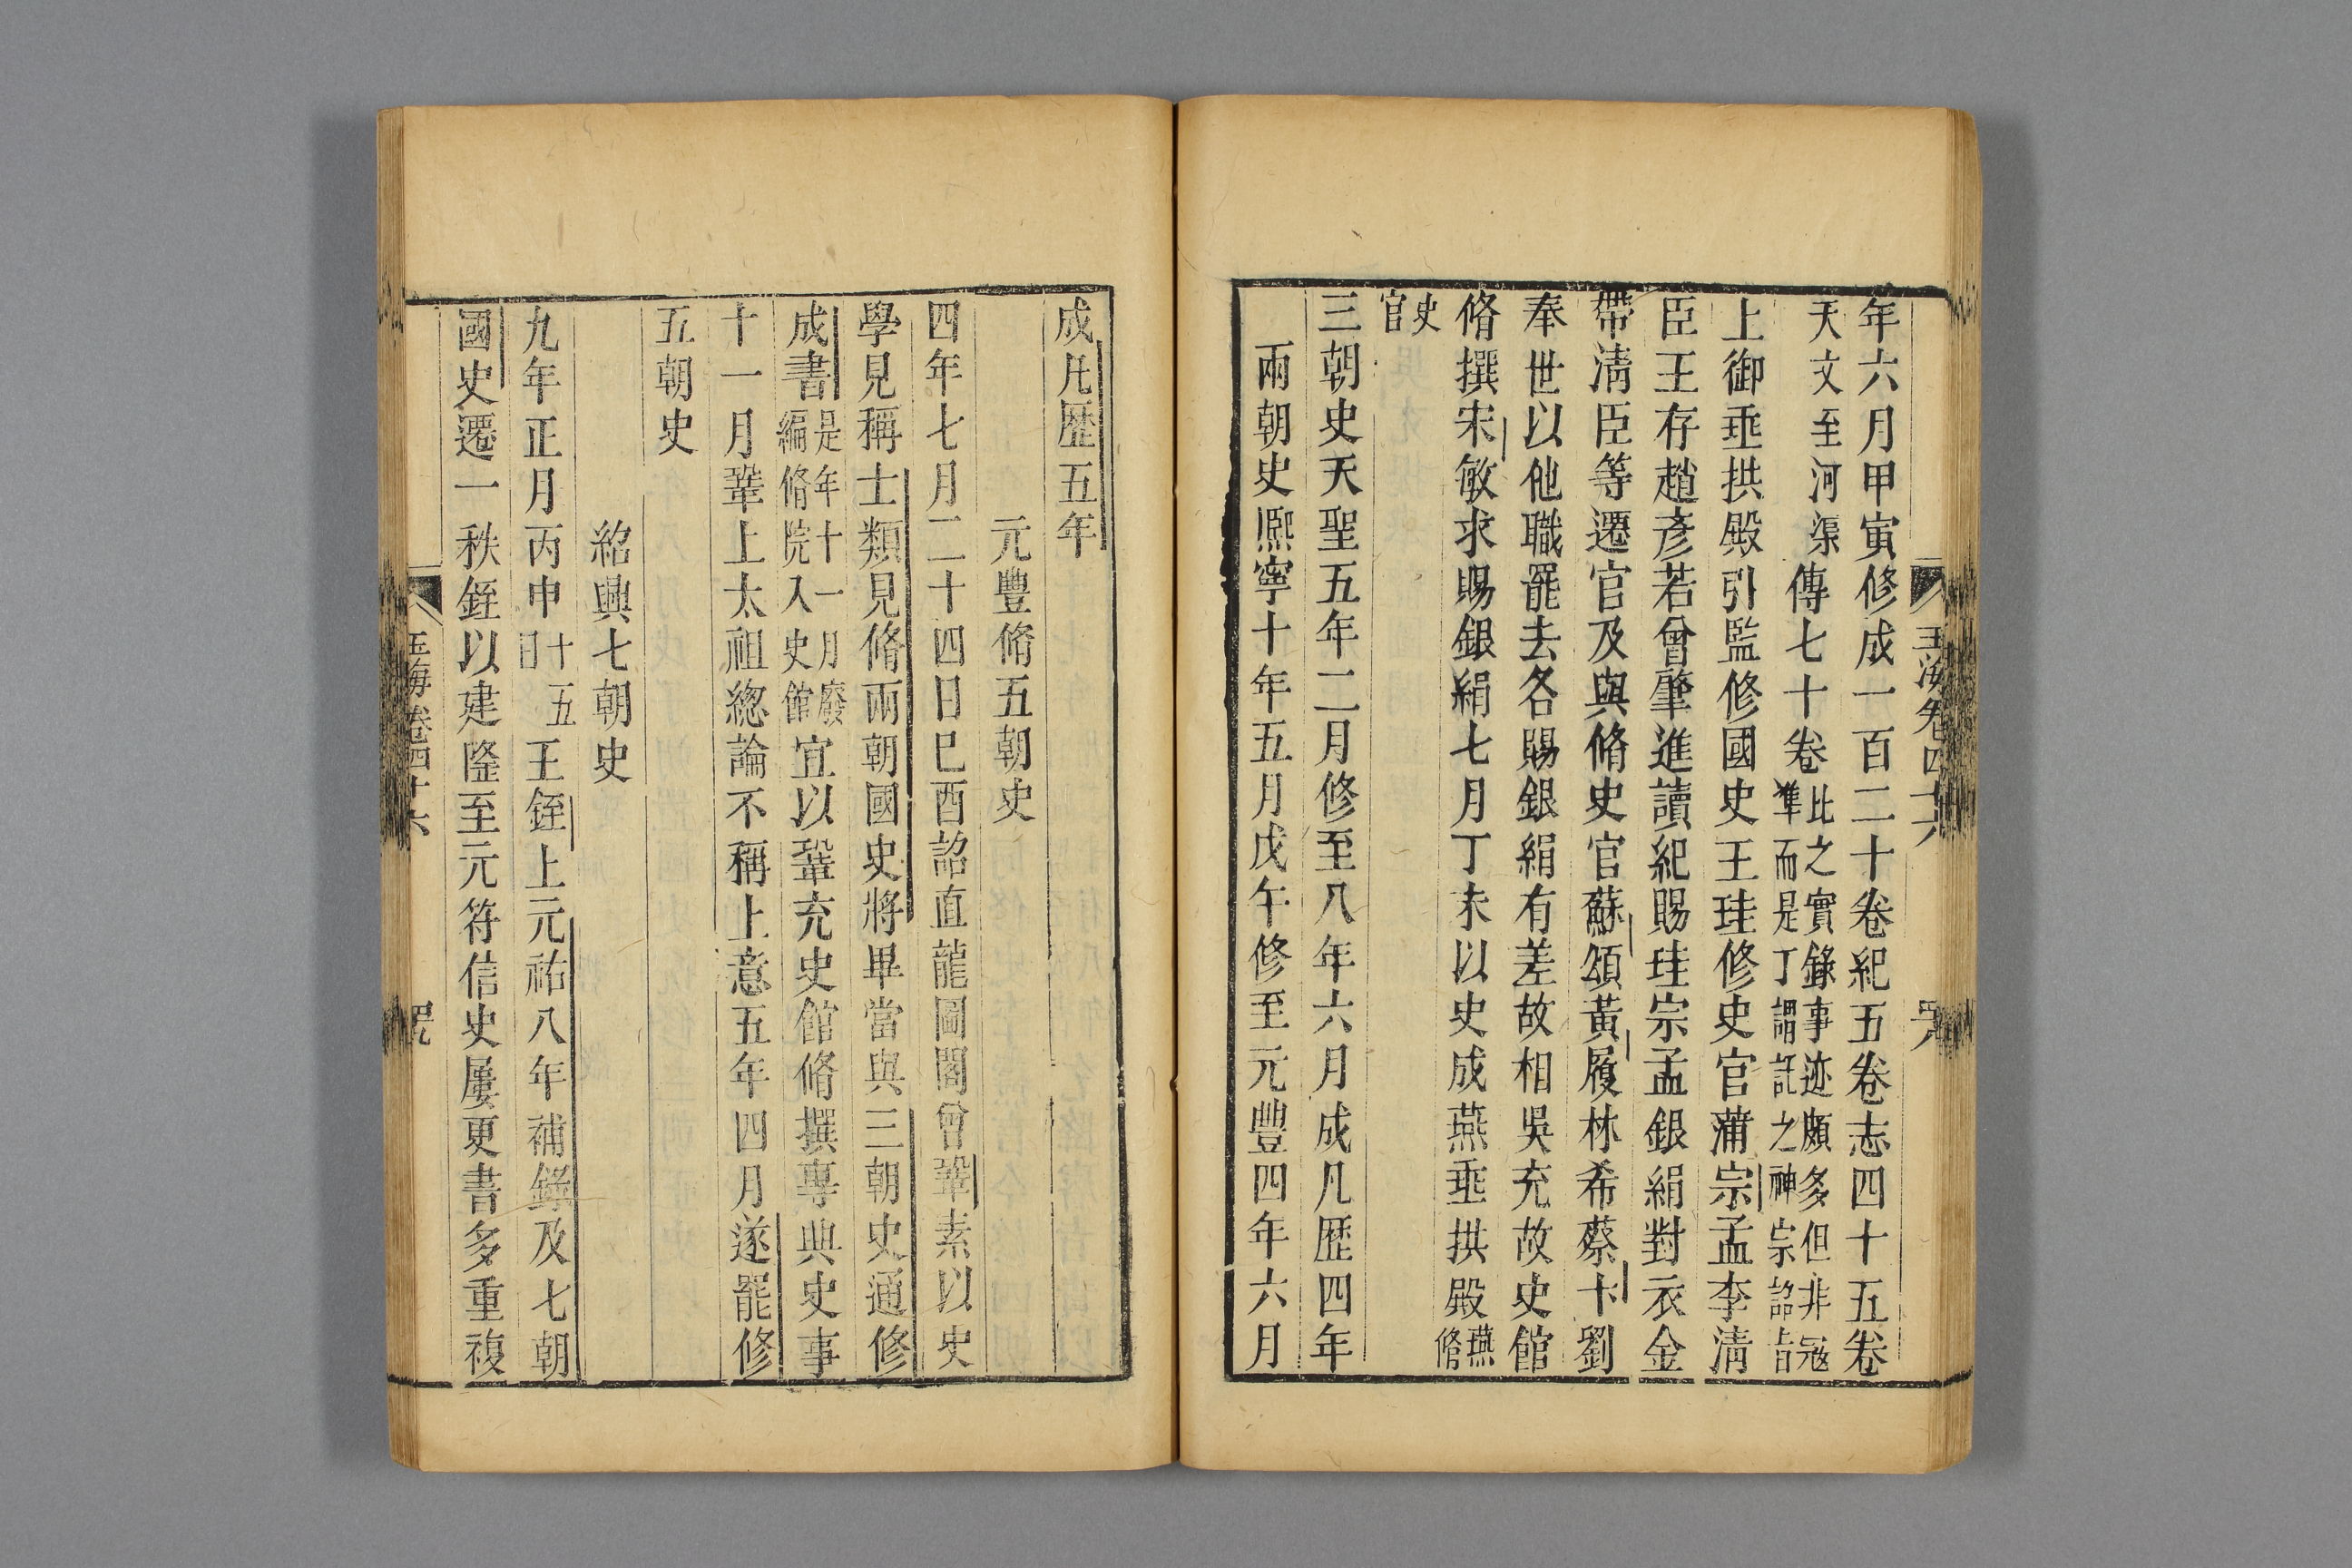 年六月甲寅修成一百二十卷紀五卷志四十五卷
天文至河渠傳七十卷比之實錄事迹頗多但非冦準而是丁謂託之神宗詔旨
上御垂拱殿引監修國史王珪修史官蒲宗孟李淸
臣王存趙彥若曾肇進讀紀賜珪宗孟銀絹對衣金
帶淸臣等遷官及與脩史官蘇頌黃履林希蔡卞劉
奉世以他職罷去各賜銀絹有差故相吳充故史館
脩撰宋敏求賜銀絹七月丁未以史成燕垂拱殿燕脩
史官
三朝史天聖五年二月修至八年六月成凡歷四年
兩朝史熈寧十年五月戊午修至元豐四年六月
成凡歷五年
元豐脩五朝史
四年七月二十四日巳酉詔直龍圖閣曾鞏素以史
學見稱士類見脩兩朝國史將畢當與三朝史通修
成書是年十一月廢編脩院入史館宜以鞏充史館脩撰專典史事
十一月鞏上太祖總論不稱上意五年四月遂罷修
五朝史
紹興七朝史
九年正月丙申十五日王銍上元祐八年補錄及七朝
國史遷一秩銍以建隆至元符信史屢更書多重複
玉海卷四十六